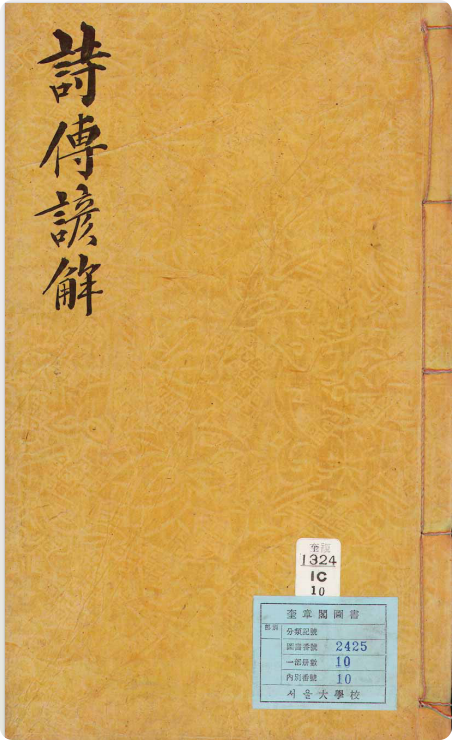 詩傳諺解
奎
1324
1C
10
奎章閣圖書
分類記號
圖書番號 2425
一部冊數 10
內別番號 10
서울大學校